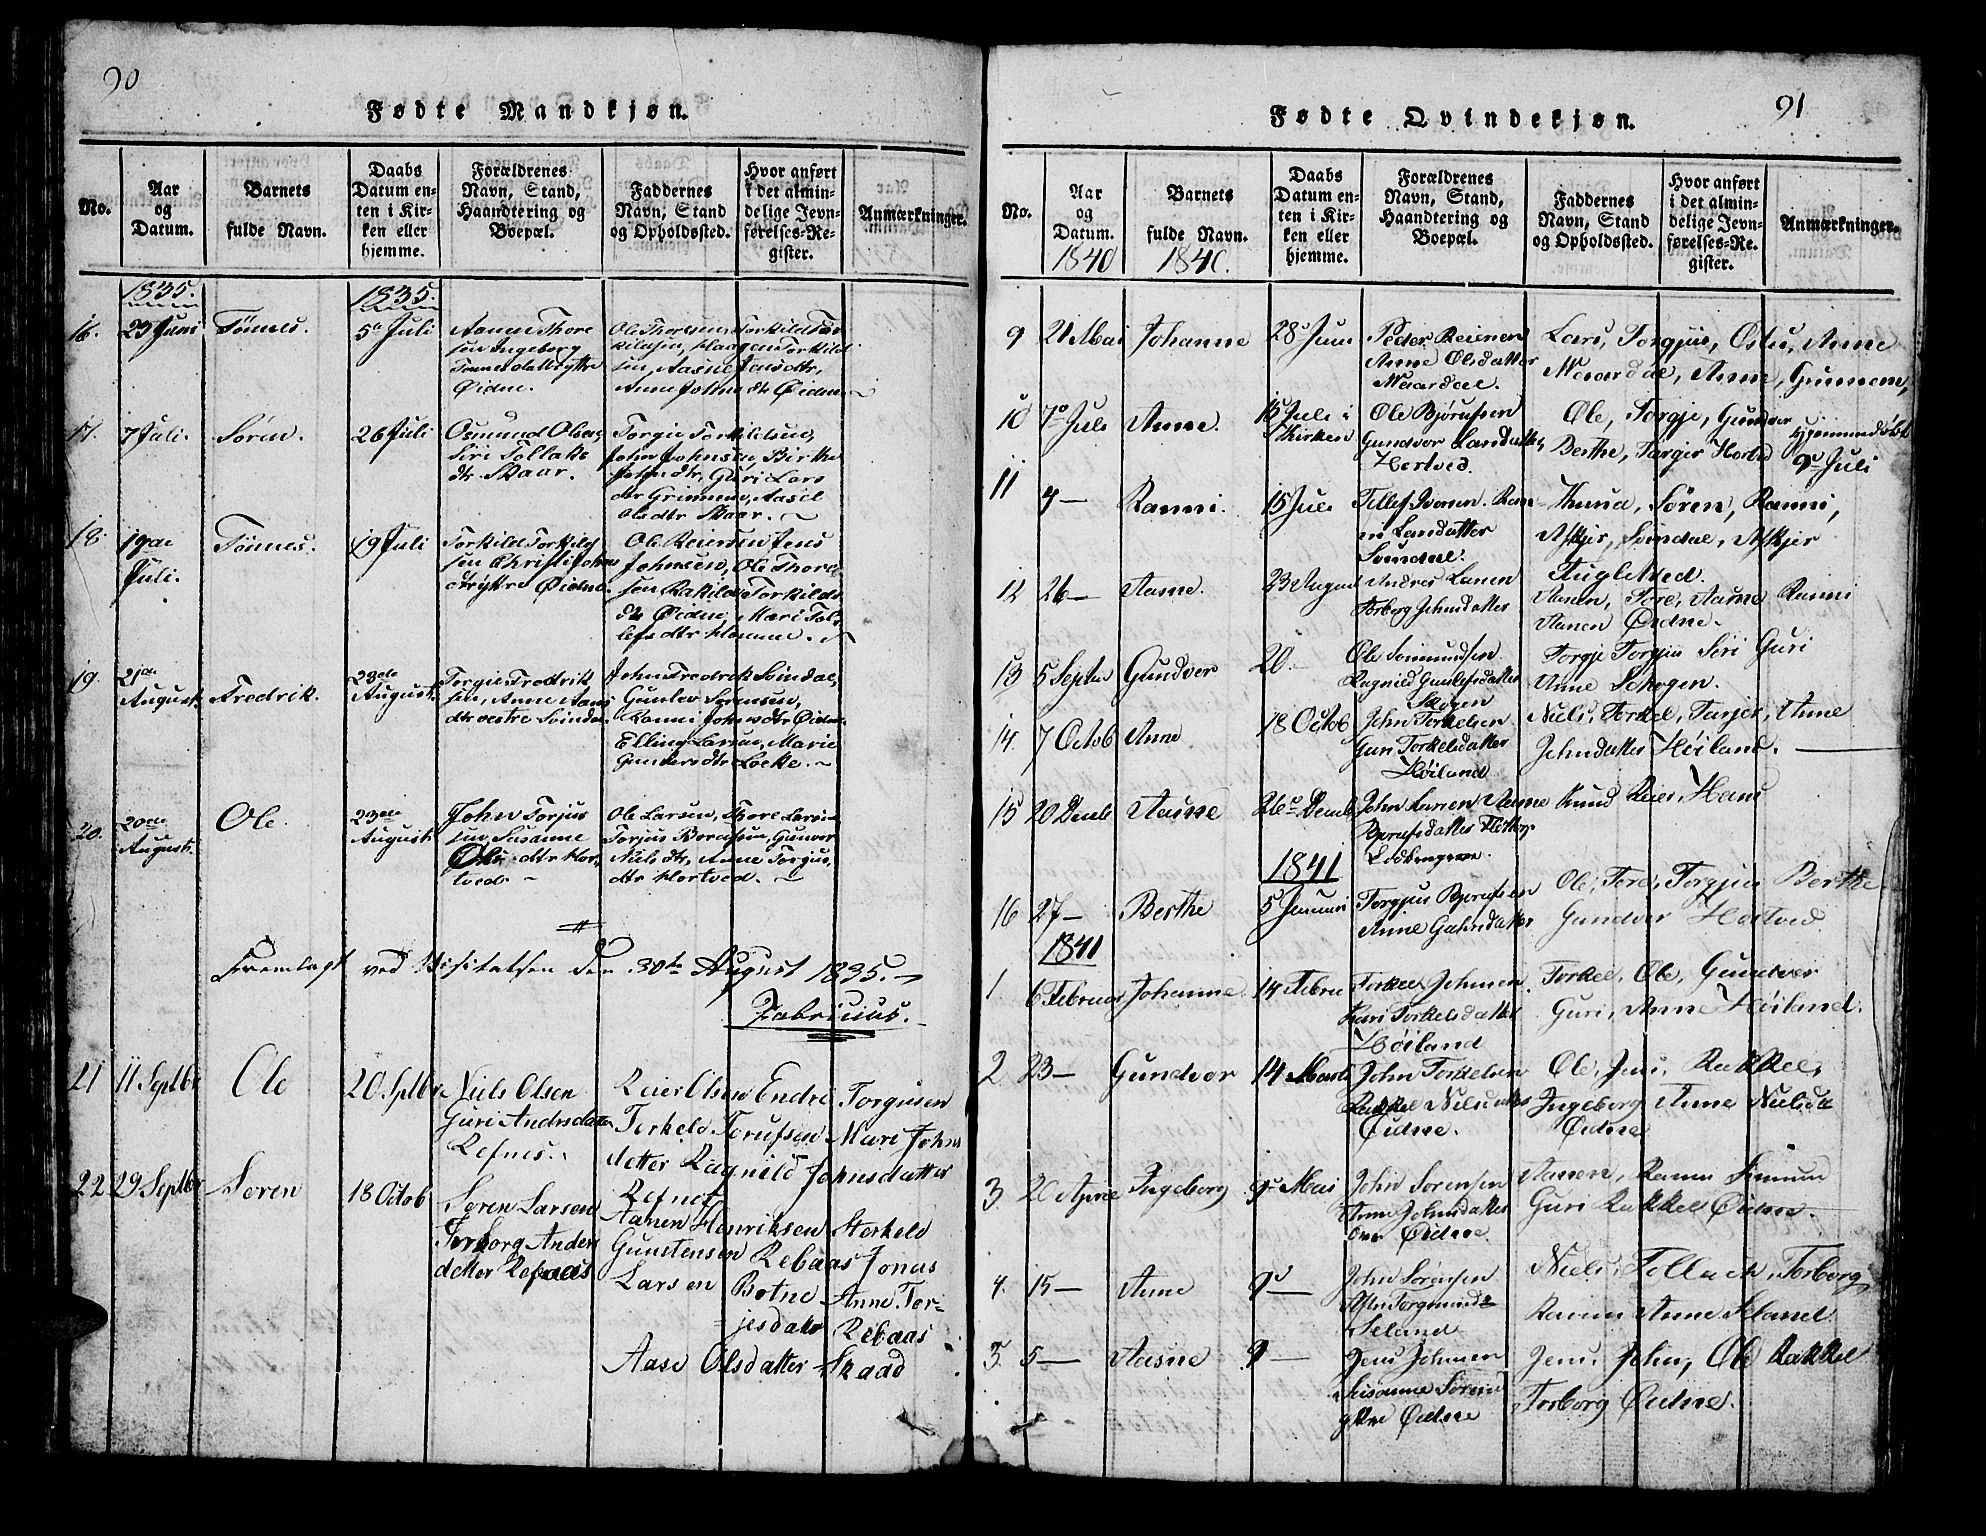 90
Fødte Mandkjøn.
No.
Aar og Datum.
Barnets fulde Navn.
Daabs Datum enten i Kirken eller hjemme.
Forældrenes Navn, Stand, Haandtering og Boepæl.
Faddernes Navn, Stand og Opholdssted.
Hvor anført i det almindelige Jevnførelses-Register.
Anmærkninger.
1835.
1835.
16.
23 Juni
Tönnes.
5te Juli
Aanen Thore
sen Ingeborg
Tönnesdatter yttre
Öidne.
Ole Thorsen, Torkild Tor
kildsen, Haagen Torkild
sen, Aasne Jensdtr,
Anne Johnsdtr Öidne.
17.
7 Juli.
Sörön.
26 Juli
Osmund Olsen
Siri Tollaks
dtr. Skaar.
Torgie Torkildsen,
John Johnsen, Birthe
Johndtr, Guri Lars
dtr Grinnem, Aasil
olsdtr Skaar.
18.
19de
Juli.
Tönnes.
19 Juli
Torkild Torkild
sen Christi John
dtr yttre Öidne
Ole Reiersen, Jens
Johnsen, Ole Thore
sen Rakild Torkilds
dtr Öidne, Mari Tol
lefsdtr Homme.
19.
21de
August.
Fredrik.
23de
August.
Torgie Fredrik
sen, Anne Aans
dtr vestre Svindal
John Fredrik Svindal,
Gunlev Sörensen,
Ranni Johnsdtr Öidne
Elling Larsen, Marie
Gundersdtr Löcke.
20.
20de
August.
Ole.
23de
August.
John Torjus
sen Susanne
Ols dtr Hor
tved.
Ole Larsen, Thore Larsen
Torjus Börufsen, Gunvor
Nielsdtr, Anne Torgus
dtr Hortved.
Fremlagt ved Visitatsen den 30te August 1835.
Fabricius.
21
11 Septbr
Ole
20 Sptbr
Niels Olsen
Guri Andrsdatter
Refnes.
Reier Olsen Endre Torgusen
Torkeld Torufsen Mari Johns
detter Ragnild Johnsdatter
Refnes
22
29 Septbr
Søren
18 Octob
Søren Larsen
Torborg Anders
detter Refnes
Aanen Henriksen Storkeld
Gunstensen Rebaas Jonas
Larsen Botne Anne Tor-
jesdatr Rebaas
Aase Olsdatter Skaad
91
Fødte Qvindekjøn.
No.
Aar og Datum.
1840
Barnets fulde Navn.
1840.
Daabs Datum enten i Kirken eller hjemme.
Forældrenes Navn, Stand, Haandtering og Boepæl.
Faddernes Navn, Stand og Opholdssted.
Hvor anført i det almindelige Jevnførelses-Register.
Anmærkninger.
9
21 Mai
Johanne
28 Juni
Peder Reiersen
Anne Olsdatter
Maardal.
Lars, Torgjus, Anne
Maardal, Anne, Gunnem,
10
7de Juli
Anne.
15 Juli i
Kirken
Ole Bjørufsen
Gundvor Larsdatter
Hortved.
Ole, Torgje, Gundvor
Berthe, Targjer Hortved
Hjemmedøbt
9de Juli
11
4 —
Ranni.
15 Juli
Tellef Iversen. Ran
ni Larsdatter
Svindal.
Knud, Søren, Ranni,
Askjer, Svindal, Askjer
Fugletved.
12
26 —
Aasne.
23 August
Andres Larsen
Torborg Johnsdatter
Aanen, Tore, Aasne Ranni
Aanen Øidne.
13
5 Septbr
Gundvor
20. —
Ole Simundsen
Ragnild Gunlefsdatter
Skogen
Torgje Torgjus Siri Guri
Anne Schogen.
14.
7 Octob
Anne
18 Octob
John Torkelsen
Guri Torkelsdatter
Høiland
Niels, Torkel, Tarjer, Anne
Johnsdatter Høiland.
15
20 Decmb
Aasne
26 Decmb
John Larsen Aasne
Bjørufsdatter
Knud Reier, Hans
1841
16
27 —
Berthe
5 Januari
Torgjus Bjørufsen
Anne Gahrsdatter
Ole, Tore, Torgjus Berthe
Gundvor Hortved
1841
1
6 Februar
Johanne.
14 Febru
Torkel Johnsen.
Kari Torkelsdatter
Høiland
Torkel, Ole, Gundvor
Guri, Anne Høiland.
2
23 —
Gundvor
14 Marts
John Torkelsen
Rakkel Nilsdatter
Øidne.
Ole, Jens, Rakkel,
Ingeborg Anne Nielsdtr
Øidne
3.
20 Aprel
Ingeborg
9de Mai
John Sørensen
Anne Johnsdatter
øvr Øidne
Aanen, Ranni
Guri Rakkel Øidne.
4.
15 —
Anne
9de —
John Sørensen
Seland
Niels, Tellack, Torborg
Ranni Anne Seland
5.
5 —
Aasne
9 —
Jens Johnsen
Susanne Sørens
ytre Øidne
Jens, John, Ole Rakkel
Torborg Øidne.